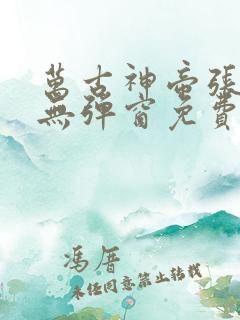 萬古神帝張
無彈窗免費
馮厝
未經同意禁止轉載